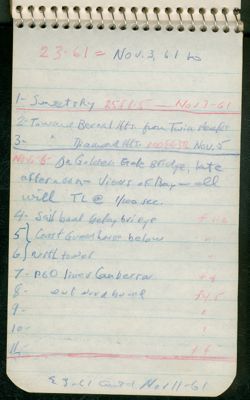 23-61 = Nov. 3, 61 to
1- Sunset Sky Nov 3-61
2- Toward Bernal Hts. from Twin Peaks
3- " Diamond Hts. Nov. 5
No 6 6 On Golden Gate Bridge, late
afternoon views of Bay - all
with TL @ 1/100 sec.
4- Sail boat below bridge
5 } Coast Guard house below
6 } north tower
7- P&O liner Canberra
8- out ward bound
9-
10-
11-
23-61 cont'd Nov 11-61